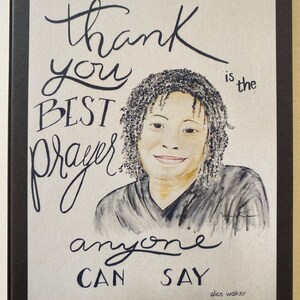 thank
you
is the
BEST
prayer
anyone
CAN SAY
alice walker